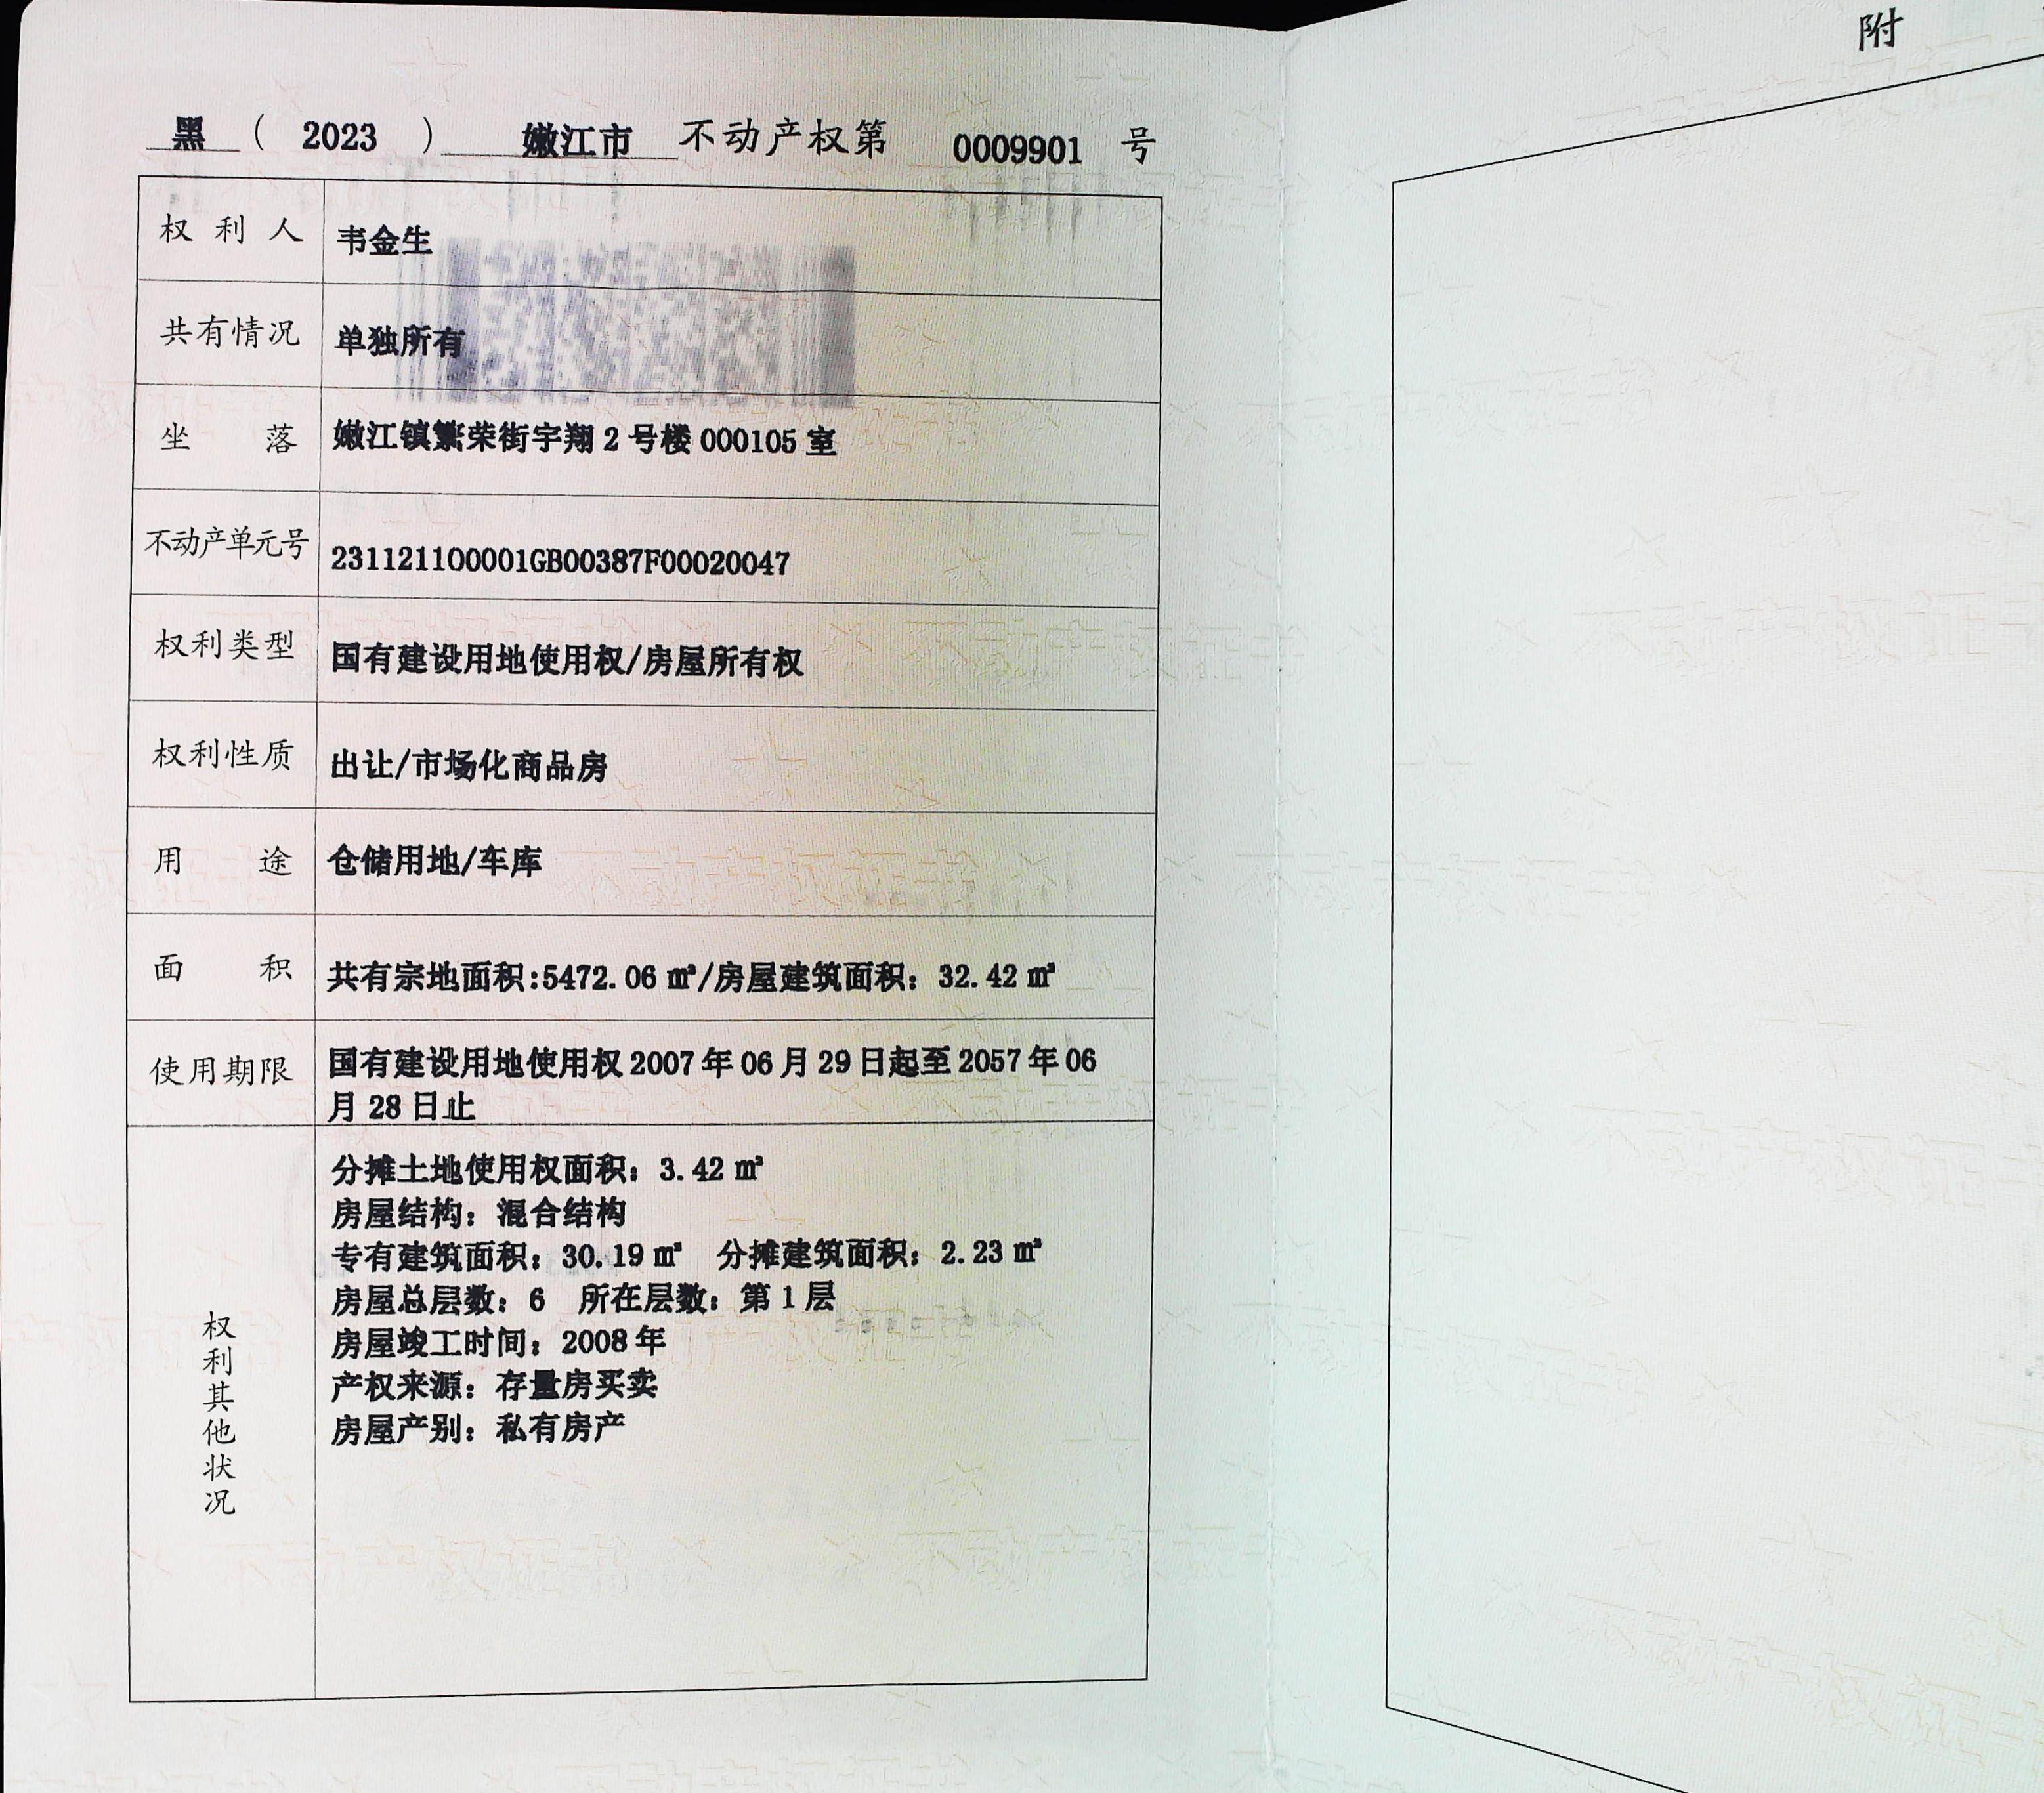 黑 ( 2023 ) 嫩江市 不动产权第 0009901 号
权利人 韦金生
共有情况 单独所有
坐落 嫩江镇繁荣街宇翔 2 号楼 000105 室
不动产单元号 231121100001GB00387F00020047
权利类型 国有建设用地使用权/房屋所有权
权利性质 出让/市场化商品房
用途 仓储用地/车库
面积 共有宗地面积:5472.06 ㎡/房屋建筑面积：32.42 ㎡
使用期限 国有建设用地使用权 2007 年 06 月 29 日起至 2057 年 06
月 28 日止
权利其他状况
分摊土地使用权面积：3.42 ㎡
房屋结构：混合结构
专有建筑面积：30.19 ㎡ 分摊建筑面积：2.23 ㎡
房屋总层数：6 所在层数：第 1 层
房屋竣工时间：2008 年
产权来源：存量房买卖
房屋产别：私有房产
附